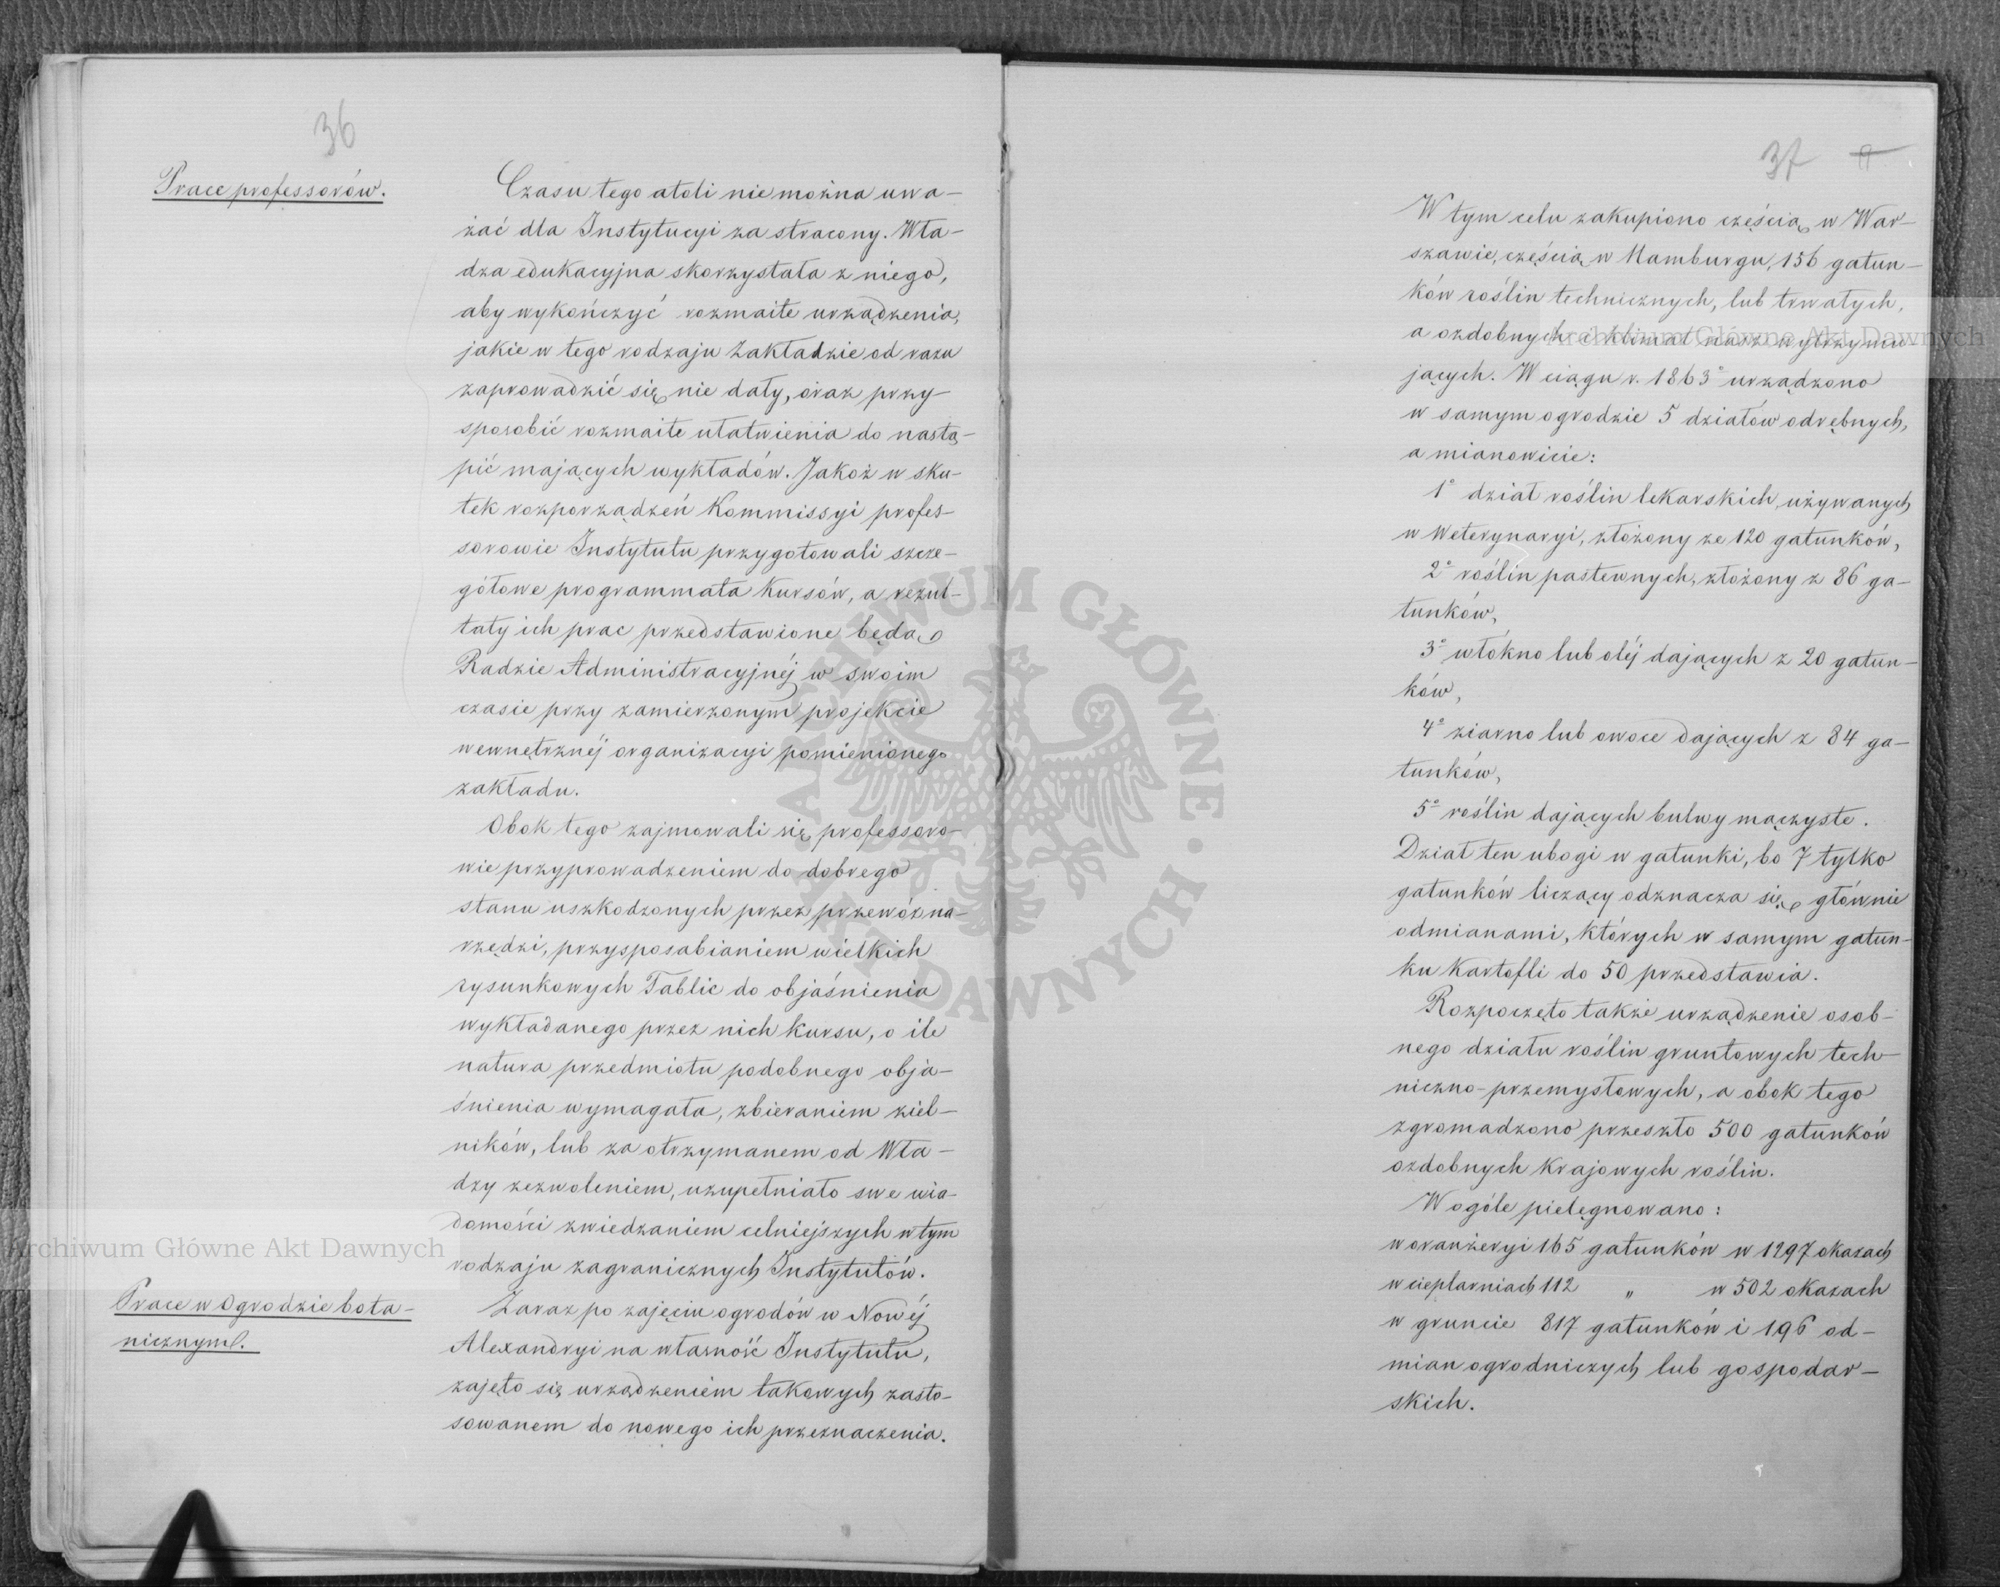 36
Prace professorów.
Czasu tego atoli nie można uwa-
żać dla Instytucyi za stracony. Wła-
dza edukacyjna skorzystała z niego,
aby wykończyć rozmaite urządzenia,
jakie w tego rodzaju Zakładzie od razu
zaprowadzić się nie dały, oraz przy-
sposobić rozmaite ułatwienia do nastą-
pić mających wykładów. Jakoż w sku-
tek rozporządzeń Kommissyi profes-
sorowie Instytutu przygotowali szcze-
gółowe programmata Kursów, a rezul-
taty ich prac przedstawione będą
Radzie Administracyjnéj w swoim
czasie przy zamierzonym projekcie
wewnętrznéj organizacyi pomienionego
zakładu.
Obok tego zajmowali się professoro-
wie przyprowadzeniem do dobrego
stanu uszkodzonych przez przewóz na-
rzędzi, przysposabianiem wielkich
rysunkowych Tablic do objaśnienia
wykładanego przez nich kursu, o ile
natura przedmiotu podobnego obja-
śnienia wymagała, zbieraniem ziel-
ników, lub za otrzymanem od Wła-
dzy zezwoleniem, uzupełniało swe wia-
domości zwiedzaniem celniejszych w tym
rodzaju zagranicznych Instytutów.
Prace w Ogrodzie bota-
nicznym.
Zaraz po zajęciu ogrodów w Nowéj
Alexandryi na własność Instytutu,
zajęto się urządzeniem takowych zasto-
sowanem do nowego ich przeznaczenia.
37
W tym celu zakupiono częścią w War-
szawie, częścią w Hamburgu, 156 gatun-
ków roślin technicznych, lub trwałych,
a ozdobnych i klimat nasz wytrzymu-
jących. W ciągu r. 1863° urządzono
w samym ogrodzie 5 działów odrębnych,
a mianowicie:
1° dział roślin lekarskich używanych
w weterynaryi, złożony ze 120 gatunków,
2° roślin pastewnych, złożony z 86 ga-
tunków,
3° włókno lub oléj dających z 20 gatun-
ków,
4° ziarno lub owoce dających z 84 ga-
tunków,
5° roślin dających bulwy mączyste.
Dział ten ubogi w gatunki, bo 7 tylko
gatunków liczący odznacza się głównie
odmianami, których w samym gatun-
ku Kartofli do 50 przedstawia.
Rozpoczęto także urządzenie osob-
nego działu roślin gruntowych tech-
niczno-przemysłowych, a obok tego
zgromadzono przeszło 500 gatunków
ozdobnych krajowych roślin.
W ogóle pielęgnowano:
w oranżeryi 165 gatunków w 1297 okazach
w cieplarniach 112 „ w 502 okazach
w gruncie 817 gatunków i 196 od-
mian ogrodniczych lub gospodar-
skich.
Archiwum Główne Akt Dawnych
Archiwum Główne Akt Dawnych
ARCHIWUM GŁÓWNE AKT DAWNYCH